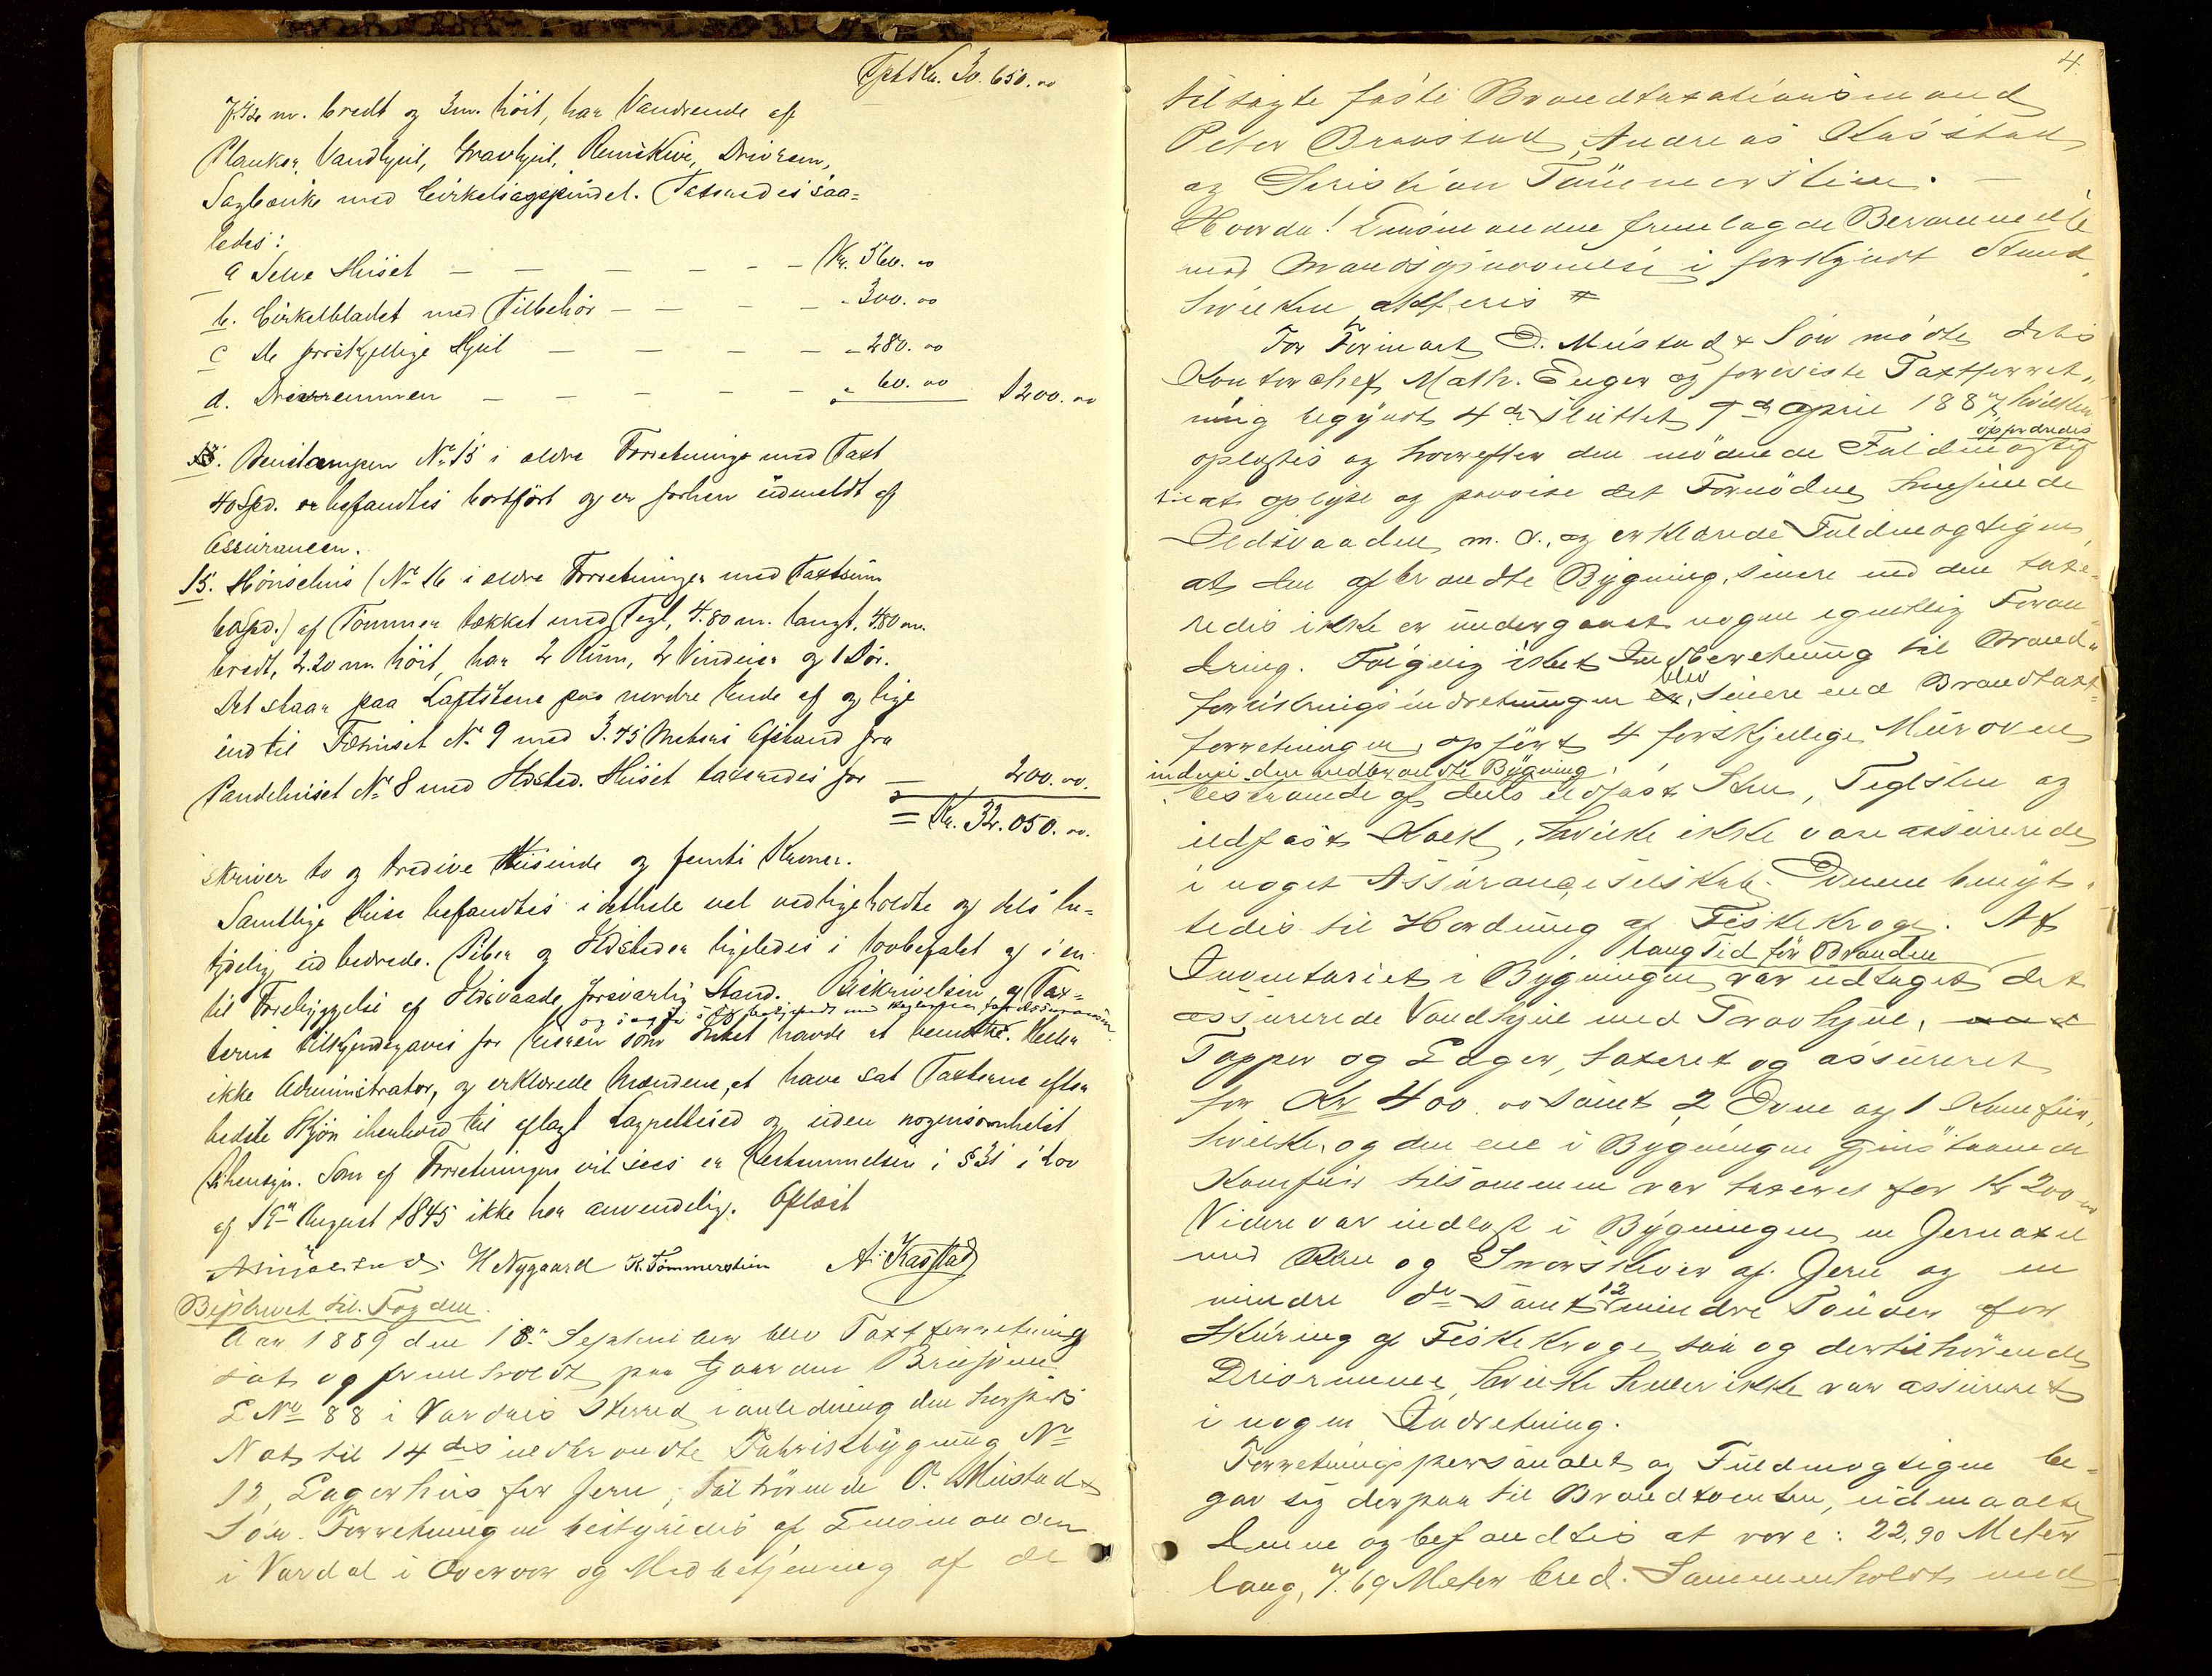 Tpt Kr. 30.650.00
7.42 m. bredt og 3 m. höit, har Vandrende af
Planker, Vandhjul, Gravhjul, Remskive, Drivrem,
Sagbænke med Cirkelsagspindel. Taxeredes saa-
ledes:
a Selve Huset — — — — — — Kr. 560.00
b. Cirkelbladet med Tilbehör — — — — - 300.00
c De forskjellige Hjul — — — — - 280.00
d. Drivremmen — — — — - 60.00 1200.00
Benstampen No 15 i ældre Forretninger med Taxt
40 Spd. befandtes bortfört og er forhen udmeldt af
Assurancen.
15. Hönsehus (No 16 i ældre Forretninger med Taxtsum
60 Spd.) af Tömmer tækket med Tegl, 4.80 m. langt, 4.80 m.
bredt, 2.20 m. höit, har 2 Rum, 2 Vinduer og 1 Dör.
Det staar paa Laftstene paa nordre Ende af og lige
ind til Fæhuset No 9 med 3.75 Meters Afstand fra
Vandehuset No 8 med Ildsted. Huset taxeredes for — 200.00.
= Kr. 32.050.00.
skriver to og tredive Tusinde og femti Kroner.
Samtlige Huse befandtes i dethele vel vedligeholdte og dels be-
tydelig udbedrede. Piber og Ildsteder ligeledes i lovbefalet og i en
til Forebyggelse af Ildsvaade forsvarlig Stand. Beskrivelsen og Tax-
terne tilkjendegaves for Eieren som Intet havde at bemærke. Heller
ikke Administrator, og erklærede Mændene, at have sat Taxterne efter
bedste Skjön i henhold til aflagt Lagrettesed og uden nogensomhelst
Sihensyn. Som af Forretningen vil sees er Bestemmelsen i § 31 i Lov
af 19de August 1845 ikke her anvendelig. Oplæst
H Nygaard K. Tömmerstien A. Kasstad
Beskrevet til Fogden.
Aar 1889 den 18de September blev Taxtforretning
sat og fremholdt paa Gaarden Brusveen
L No 88 i Vardals Herred i anledning den herpaa
Nat til 14 ds nedbrændte Fabrikbygning No
12, Lagerhus for Jern, tilhörende O. Mustad &
Sön. Forretningen bestyredes af Lensmanden
i Vardal i Overvær og Medbetjening af de
4.
tilsagte faste Brandtaxationsmænd
Peter Braastad, Andreas Kasstad
og Kristian Tömmerstien. —
Hvorda! Lensmanden fremlagde Berammelse
med Mandsopnævnelse i forkyndt Stand,
hvilken afferes #
For Firmaet O. Mustad & Sön mödte dets
Kontorchef Math. Enger og foreviste Taxtforret-
ning begyndt 4de sluttet 7de April 1887, hvilken
oplæstes og hvorefter den mödende Fuldmægtig opfordredes
til at oplyse og paavise det Fornödne henseende
Ildsvaaden m. v., og erklærede Fuldmægtigen,
at den afbrændte Bygning, siden den taxe-
redes ikke er undergaaet nogen egentlig Foran
dring. Følgelig isket Indberetning til Brand-
forsikringsindretningen blev, senere end Brandtaxt-
forretningen, opfört 4 forskjellige Murovne
inden i den nedbrændte Bygning
bestaaende af dels ildfast Sten, Teglsten og
ildfast Kalk, hvilke ikke var assurerede
i noget Assuranceselskab. Ovnene benyt-
tedes til Hærdning af Fiskekroge. Af
Inventariet i Bygningen var lang Tid för Branden udtaget det
assurerede Vandhjul med Gravhjul,
Tapper og Lager, taxeret og assureret
for Kr 400.00 samt 2 Ovne og 1 Komfur,
hvilke, og den ene i Bygningen gjenstaaende
Komfur tilsammen var taxeret for Kr 200.00
Videre var indlagt i Bygningen en Jernaxel
med og Snorskiver af Jern og en
mindre do samt 12 mindre Tönder for
Skuring af Fiskekroge saa og dertilhörende
Drivremmer, hvilke heller ikke var assureret
i nogen Indretning.
Forretningspersonalet og Fuldmægtigen be-
gav sig derpaa til Brandtomten, udmaalte
denne og befandtes at være: 22,90 Meter
lang, 7.69 Meter bred. Sammenholdt med